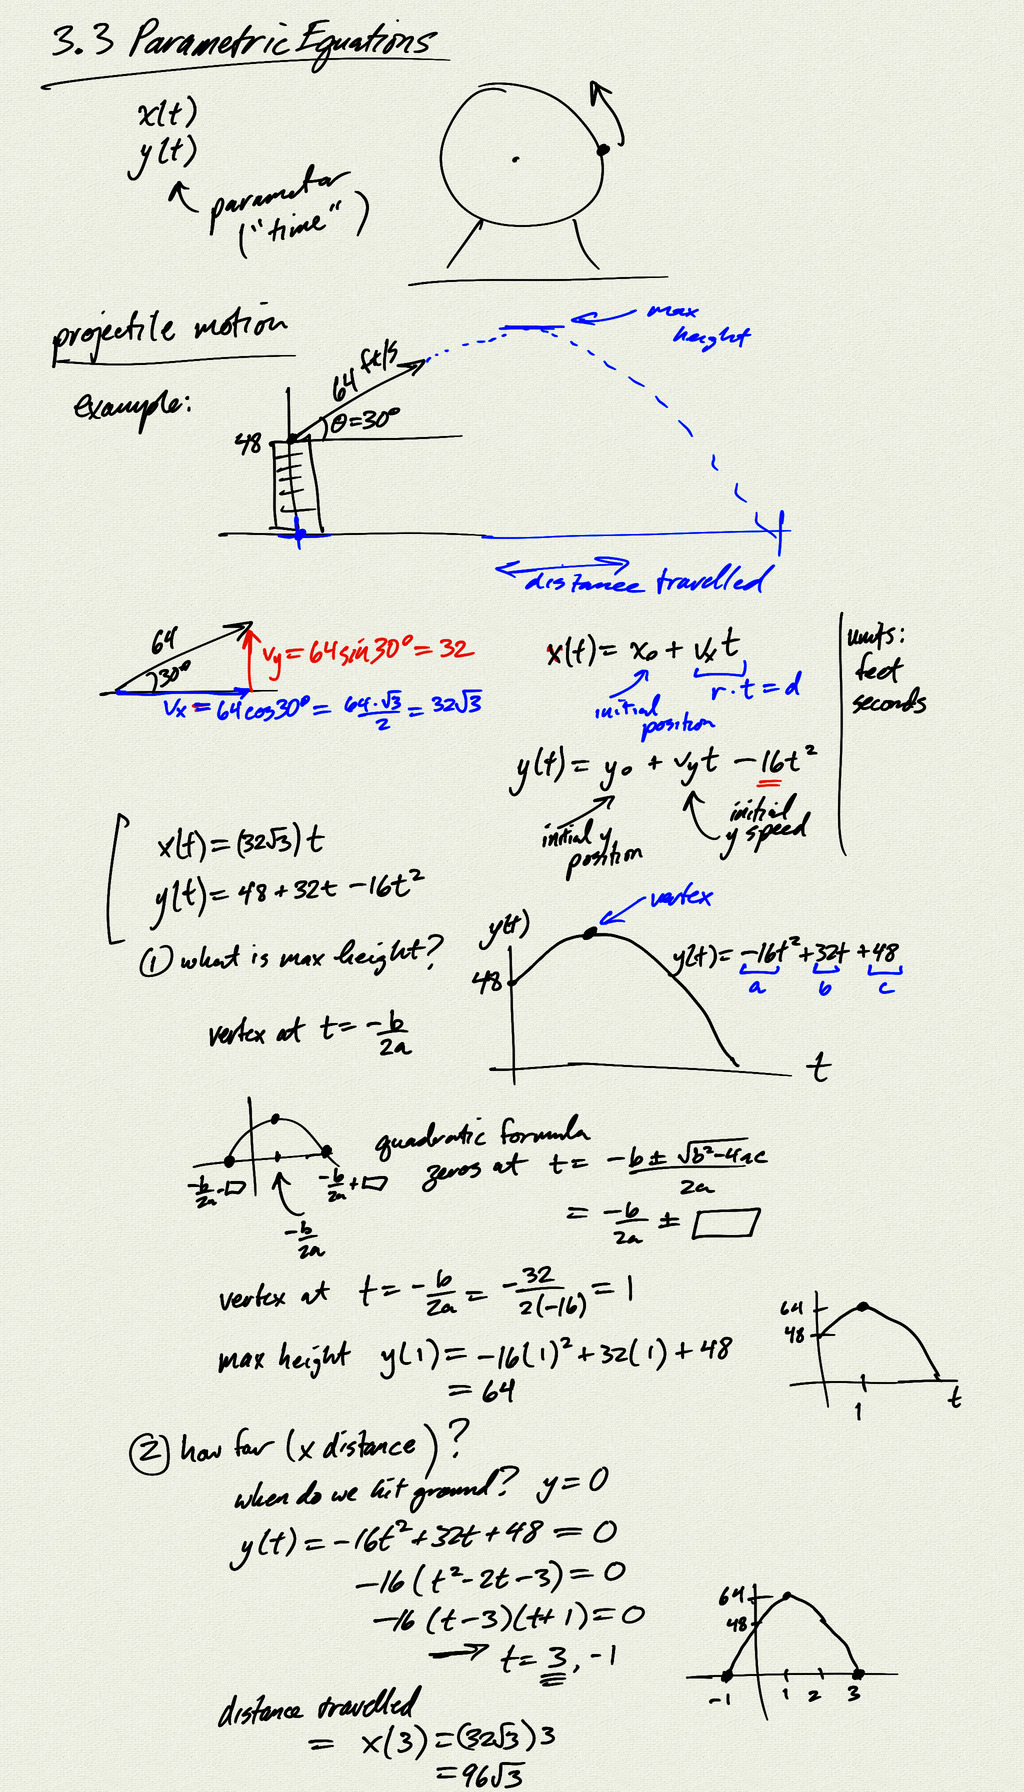 3.3 Parametric Equations
x(t)
y(t)
parameter
("time")
projectile motion
max
height
64 ft/s
example:
θ=30°
48
distance travelled
64
30°
vy = 64 sin 30° = 32
vx = 64 cos 30° = 64·√3/2 = 32√3
x(t) = x₀ + vx t
r·t = d
initial
position
units:
feet
seconds
y(t) = y₀ + vy t − 16t²
initial y
position
initial
y speed
x(t) = (32√3) t
y(t) = 48 + 32t − 16t²
① what is max height?
vertex
y(t)
48
y(t) = −16t² + 32t + 48
a b c
vertex at t = −b/2a
t
quadratic formula
zeros at t = −b ± √b²−4ac / 2a
= −b/2a ± □
−b/2a − □
−b/2a + □
−b/2a
vertex at t = −b/2a = −32/2(−16) = 1
max height y(1) = −16(1)² + 32(1) + 48
= 64
64
48
1
t
② how far (x distance)?
when do we hit ground? y = 0
y(t) = −16t² + 32t + 48 = 0
−16(t² − 2t − 3) = 0
−16(t − 3)(t + 1) = 0
→ t = 3, −1
64
48
−1 1 2 3
distance travelled
= x(3) = (32√3)3
= 96√3